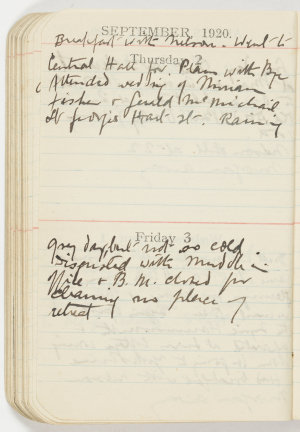 SEPTEMBER, 1920.
Breakfast with Nelson. Went to
Thursday 2
Central Hall for Plans with Bye
Attended wedding of Miriam
Fisher & Gerald McMichael
St George's Hart St. Raining
Friday 3
Grey day but not so cold
Disgusted with muddle in
Office & B.M. closed for
cleaning no place of
retreat.